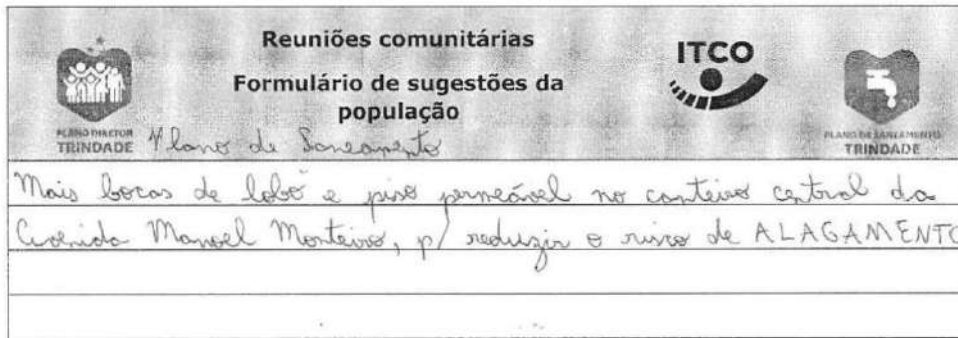 Reuniões comunitárias
Formulário de sugestões da
população
ITCO
PLANO DIRETOR
TRINDADE
PLANO DE SANEAMENTO
TRINDADE
Plano de Saneamento
Mais bocas de lobo e piso permeável no canteiro central da
Avenida Manoel Monteiro, p/ reduzir o risco de ALAGAMENTO